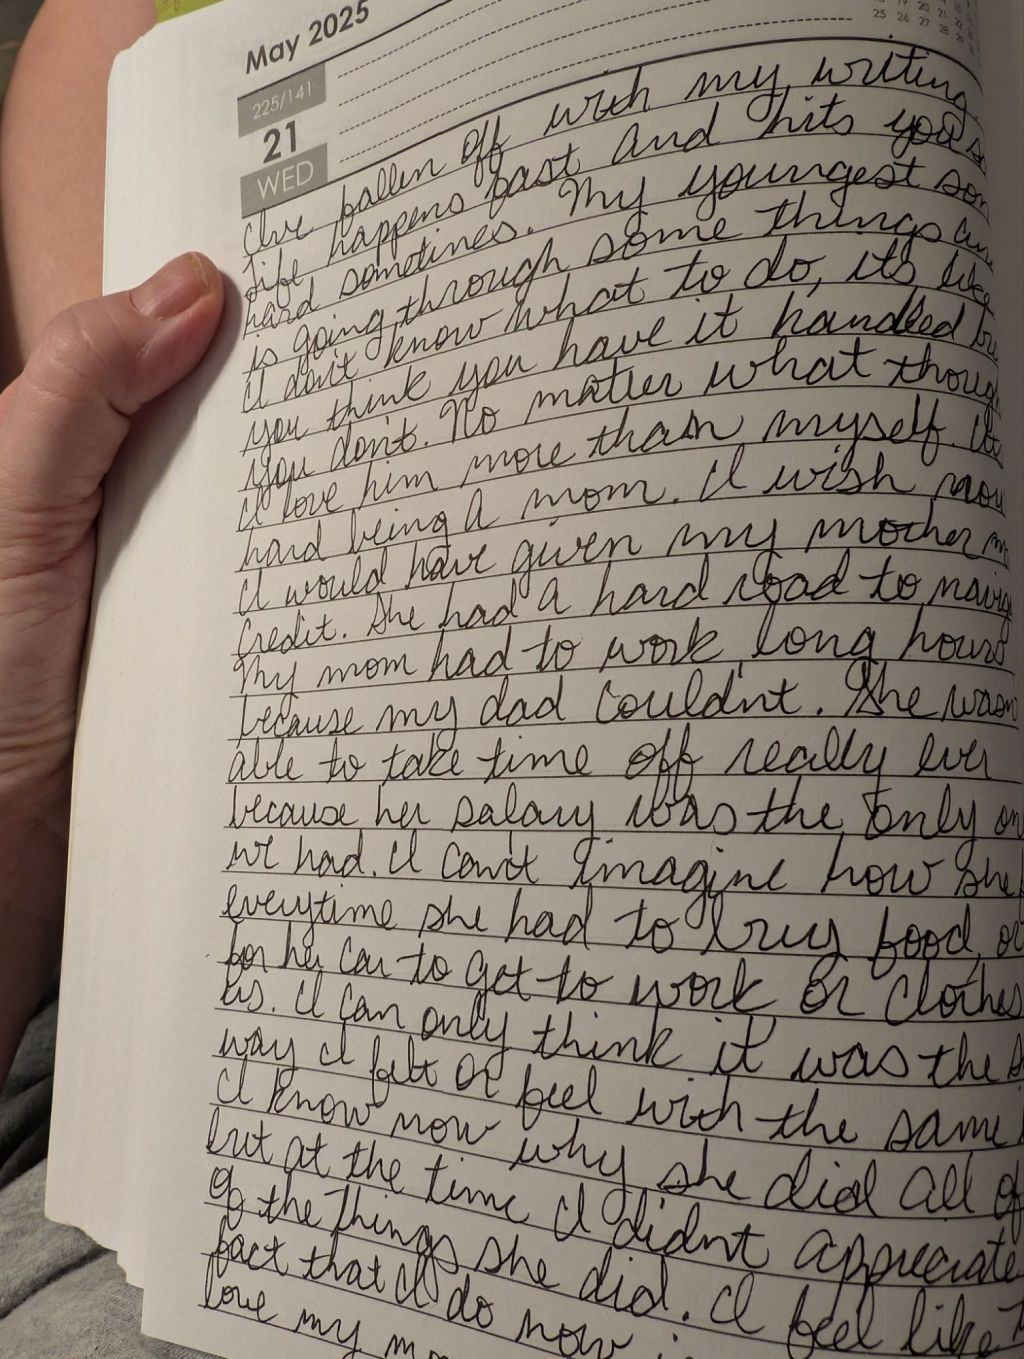 May 2025
25 26 27 28
225/141
21
WED
I've fallen off with my writing
Life happens fast and hits you
hard somotines. My youngest son
is going through some things
I don't know what to do, its like
you think you have it handled
you don't. No matter what
I love him more than myself. Its
hard being a mom. I wish
I would have given my mother
credit. She had a hard road to
My mom had to work long hours
because my dad couldnt. She
able to take time off really ever
because her salary was the only
we had. I can't imagine how she
everytime she had to buy food,
for her car to get to work or clothes
us. I can only think it was the
way I felt or feel with the same
I know now why she did all of
but at the time I didnt appreciate
of the things she did. I feel like
fact that I do now
love my